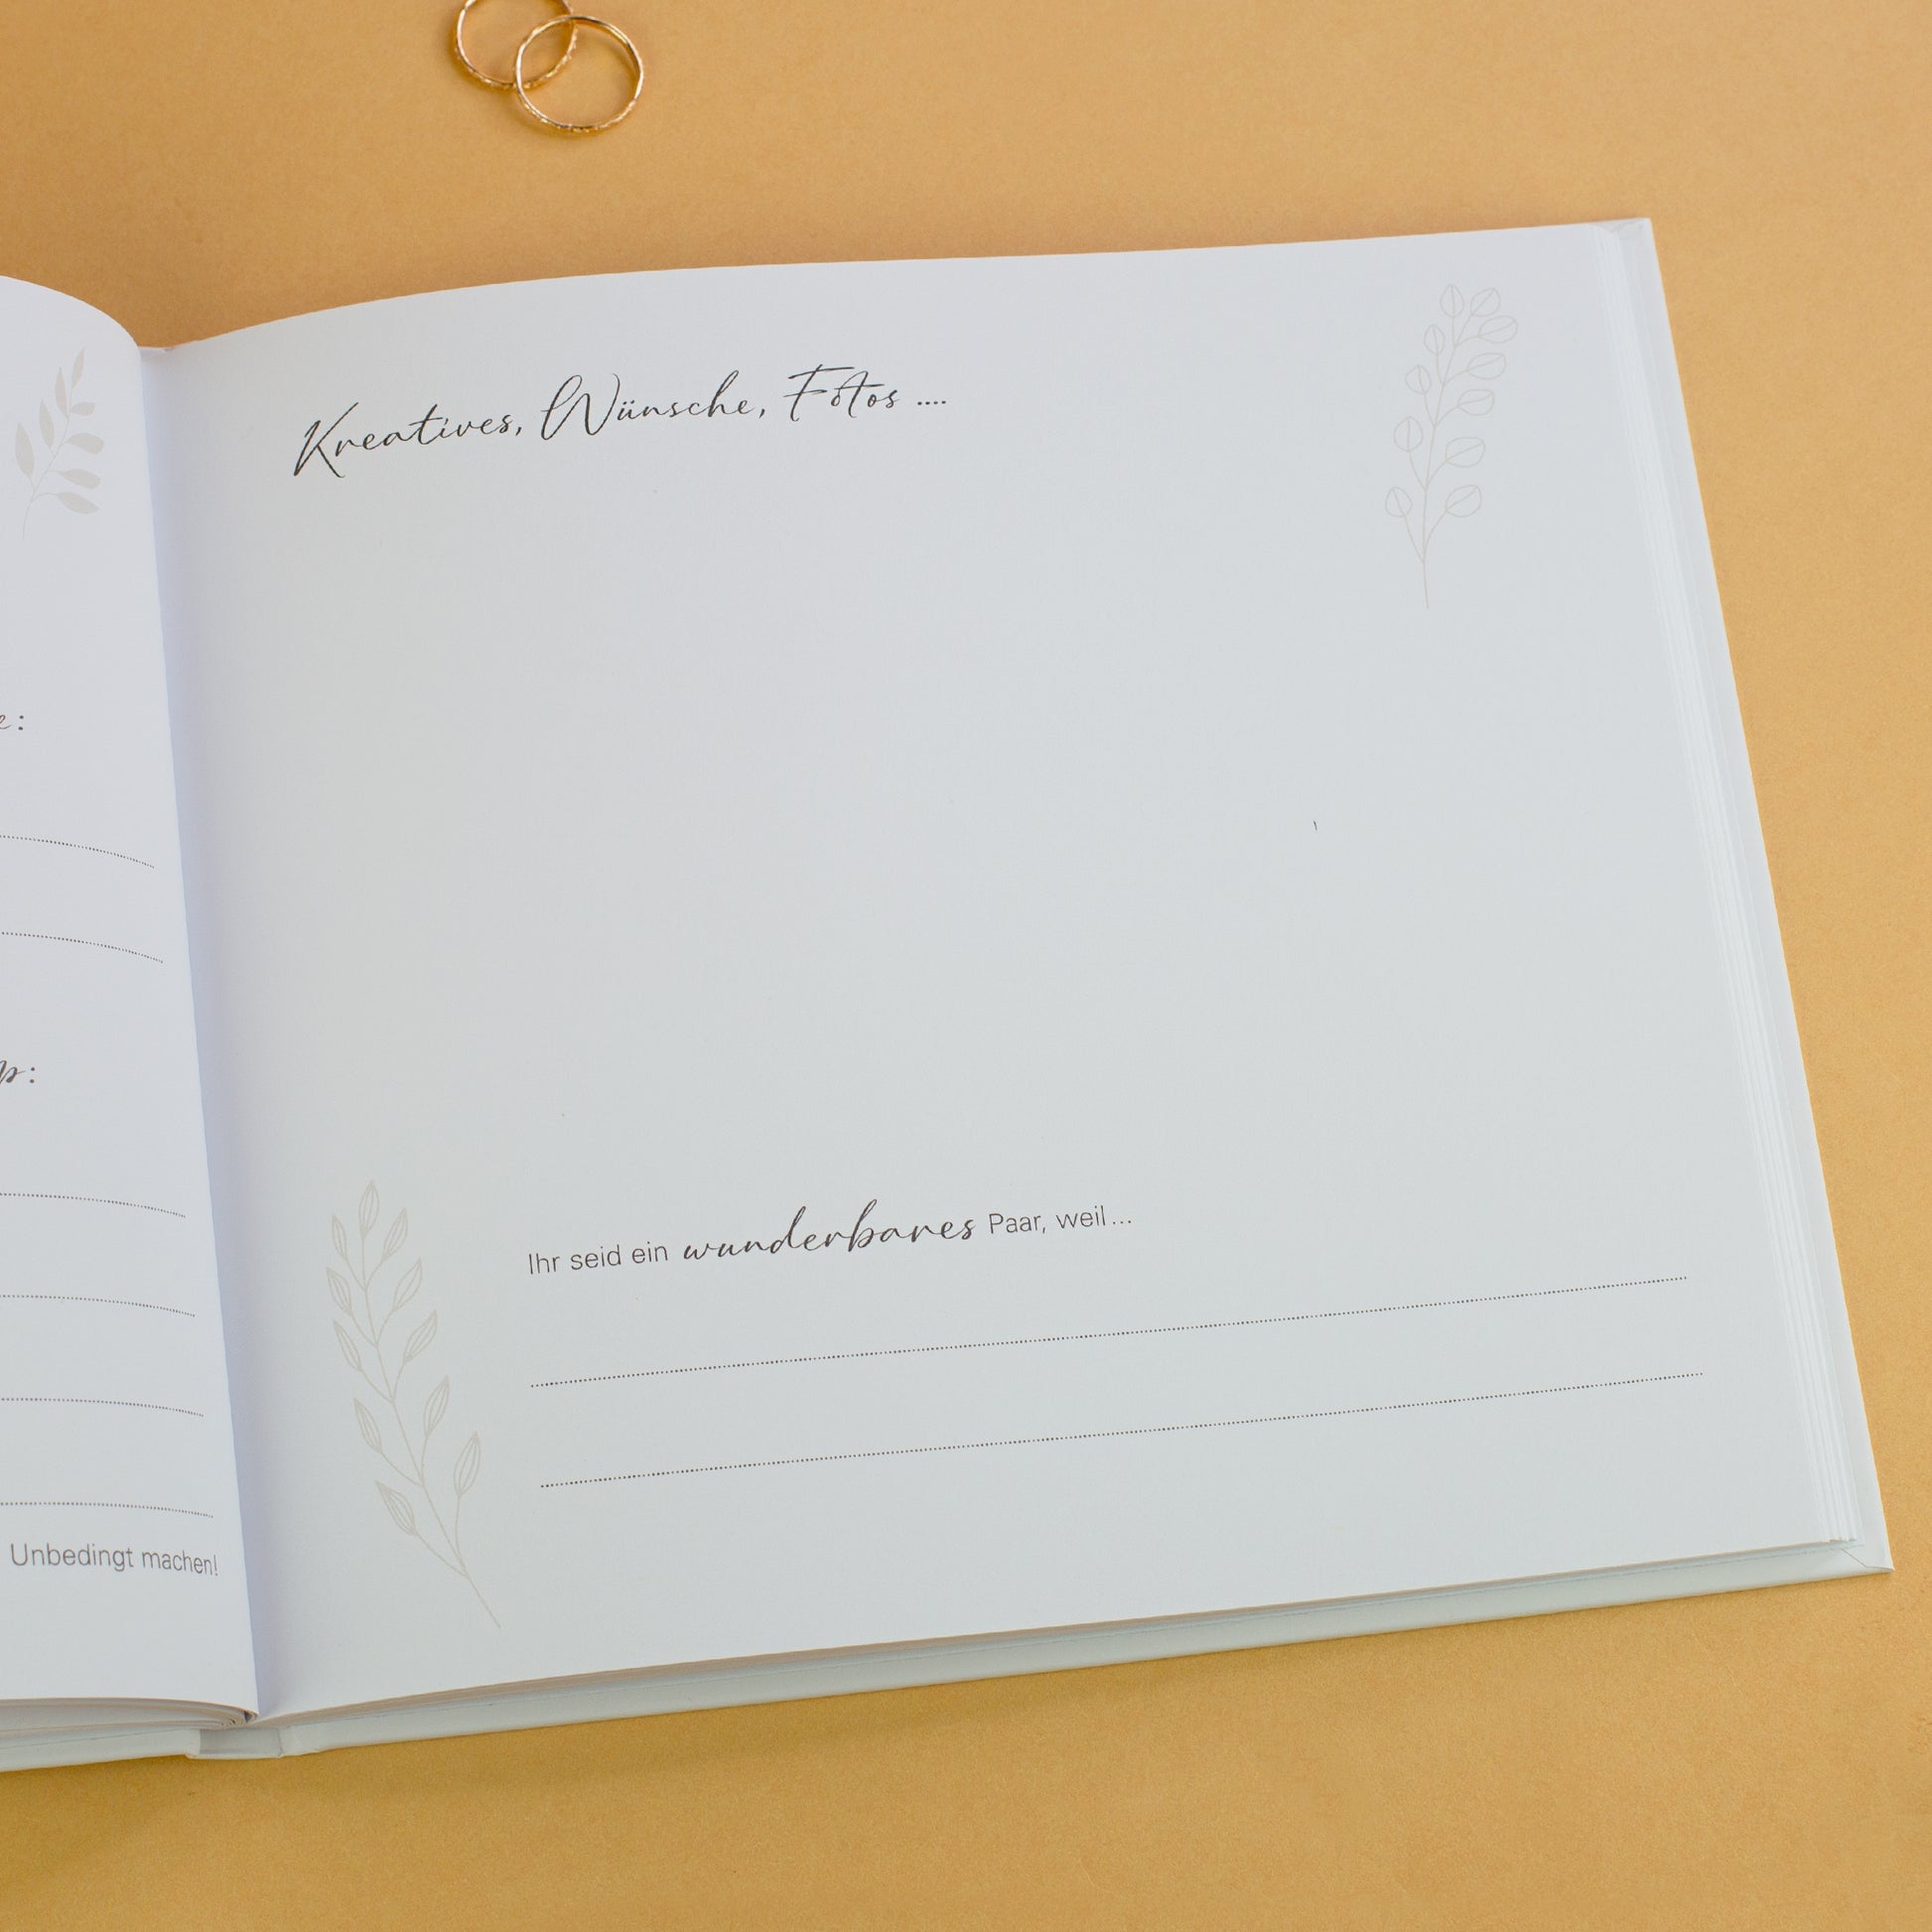 Unbedingt machen!
Kreatives, Wünsche, Fotos ....
Ihr seid ein wunderbares Paar, weil ...